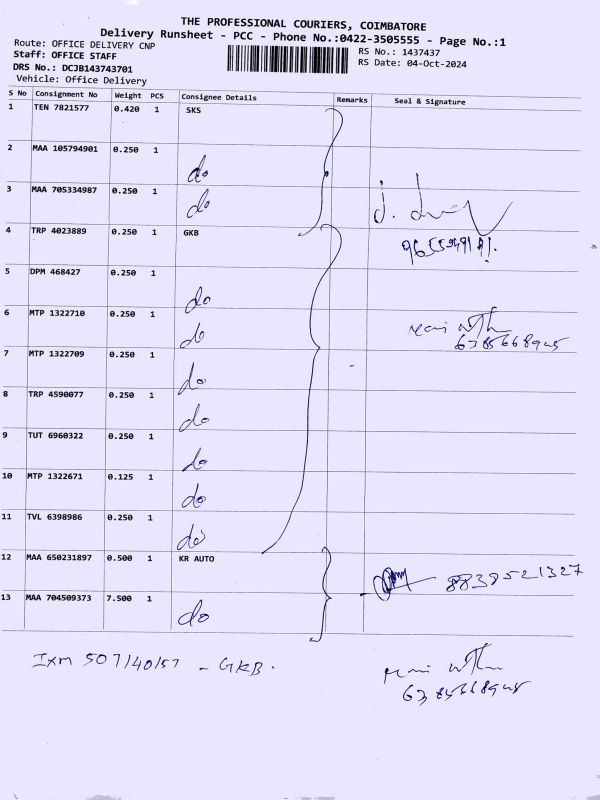 THE PROFESSIONAL COURIERS, COIMBATORE
Delivery Runsheet - PCC - Phone No.:0422-3505555 - Page No.:1
Route: OFFICE DELIVERY CNP
Staff: OFFICE STAFF
DRS No.: DCJB143743701
Vehicle: Office Delivery
RS No.: 1437437
RS Date: 04-Oct-2024
S No Consignment No Weight PCS Consignee Details Remarks Seal & Signature
1 TEN 7821577 0.420 1 SKS
2 MAA 105794901 0.250 1 do
3 MAA 705334987 0.250 1 do
4 TRP 4023889 0.250 1 GKB
5 DPM 468427 0.250 1 do
6 MTP 1322710 0.250 1 do
7 MTP 1322709 0.250 1 do
8 TRP 4590077 0.250 1 do
9 TUT 6960322 0.250 1 do
10 MTP 1322671 0.125 1 do
11 TVL 6398986 0.250 1 do
12 MAA 650231897 0.500 1 KR AUTO
8838521327
13 MAA 704509373 7.500 1 do
- GKB.